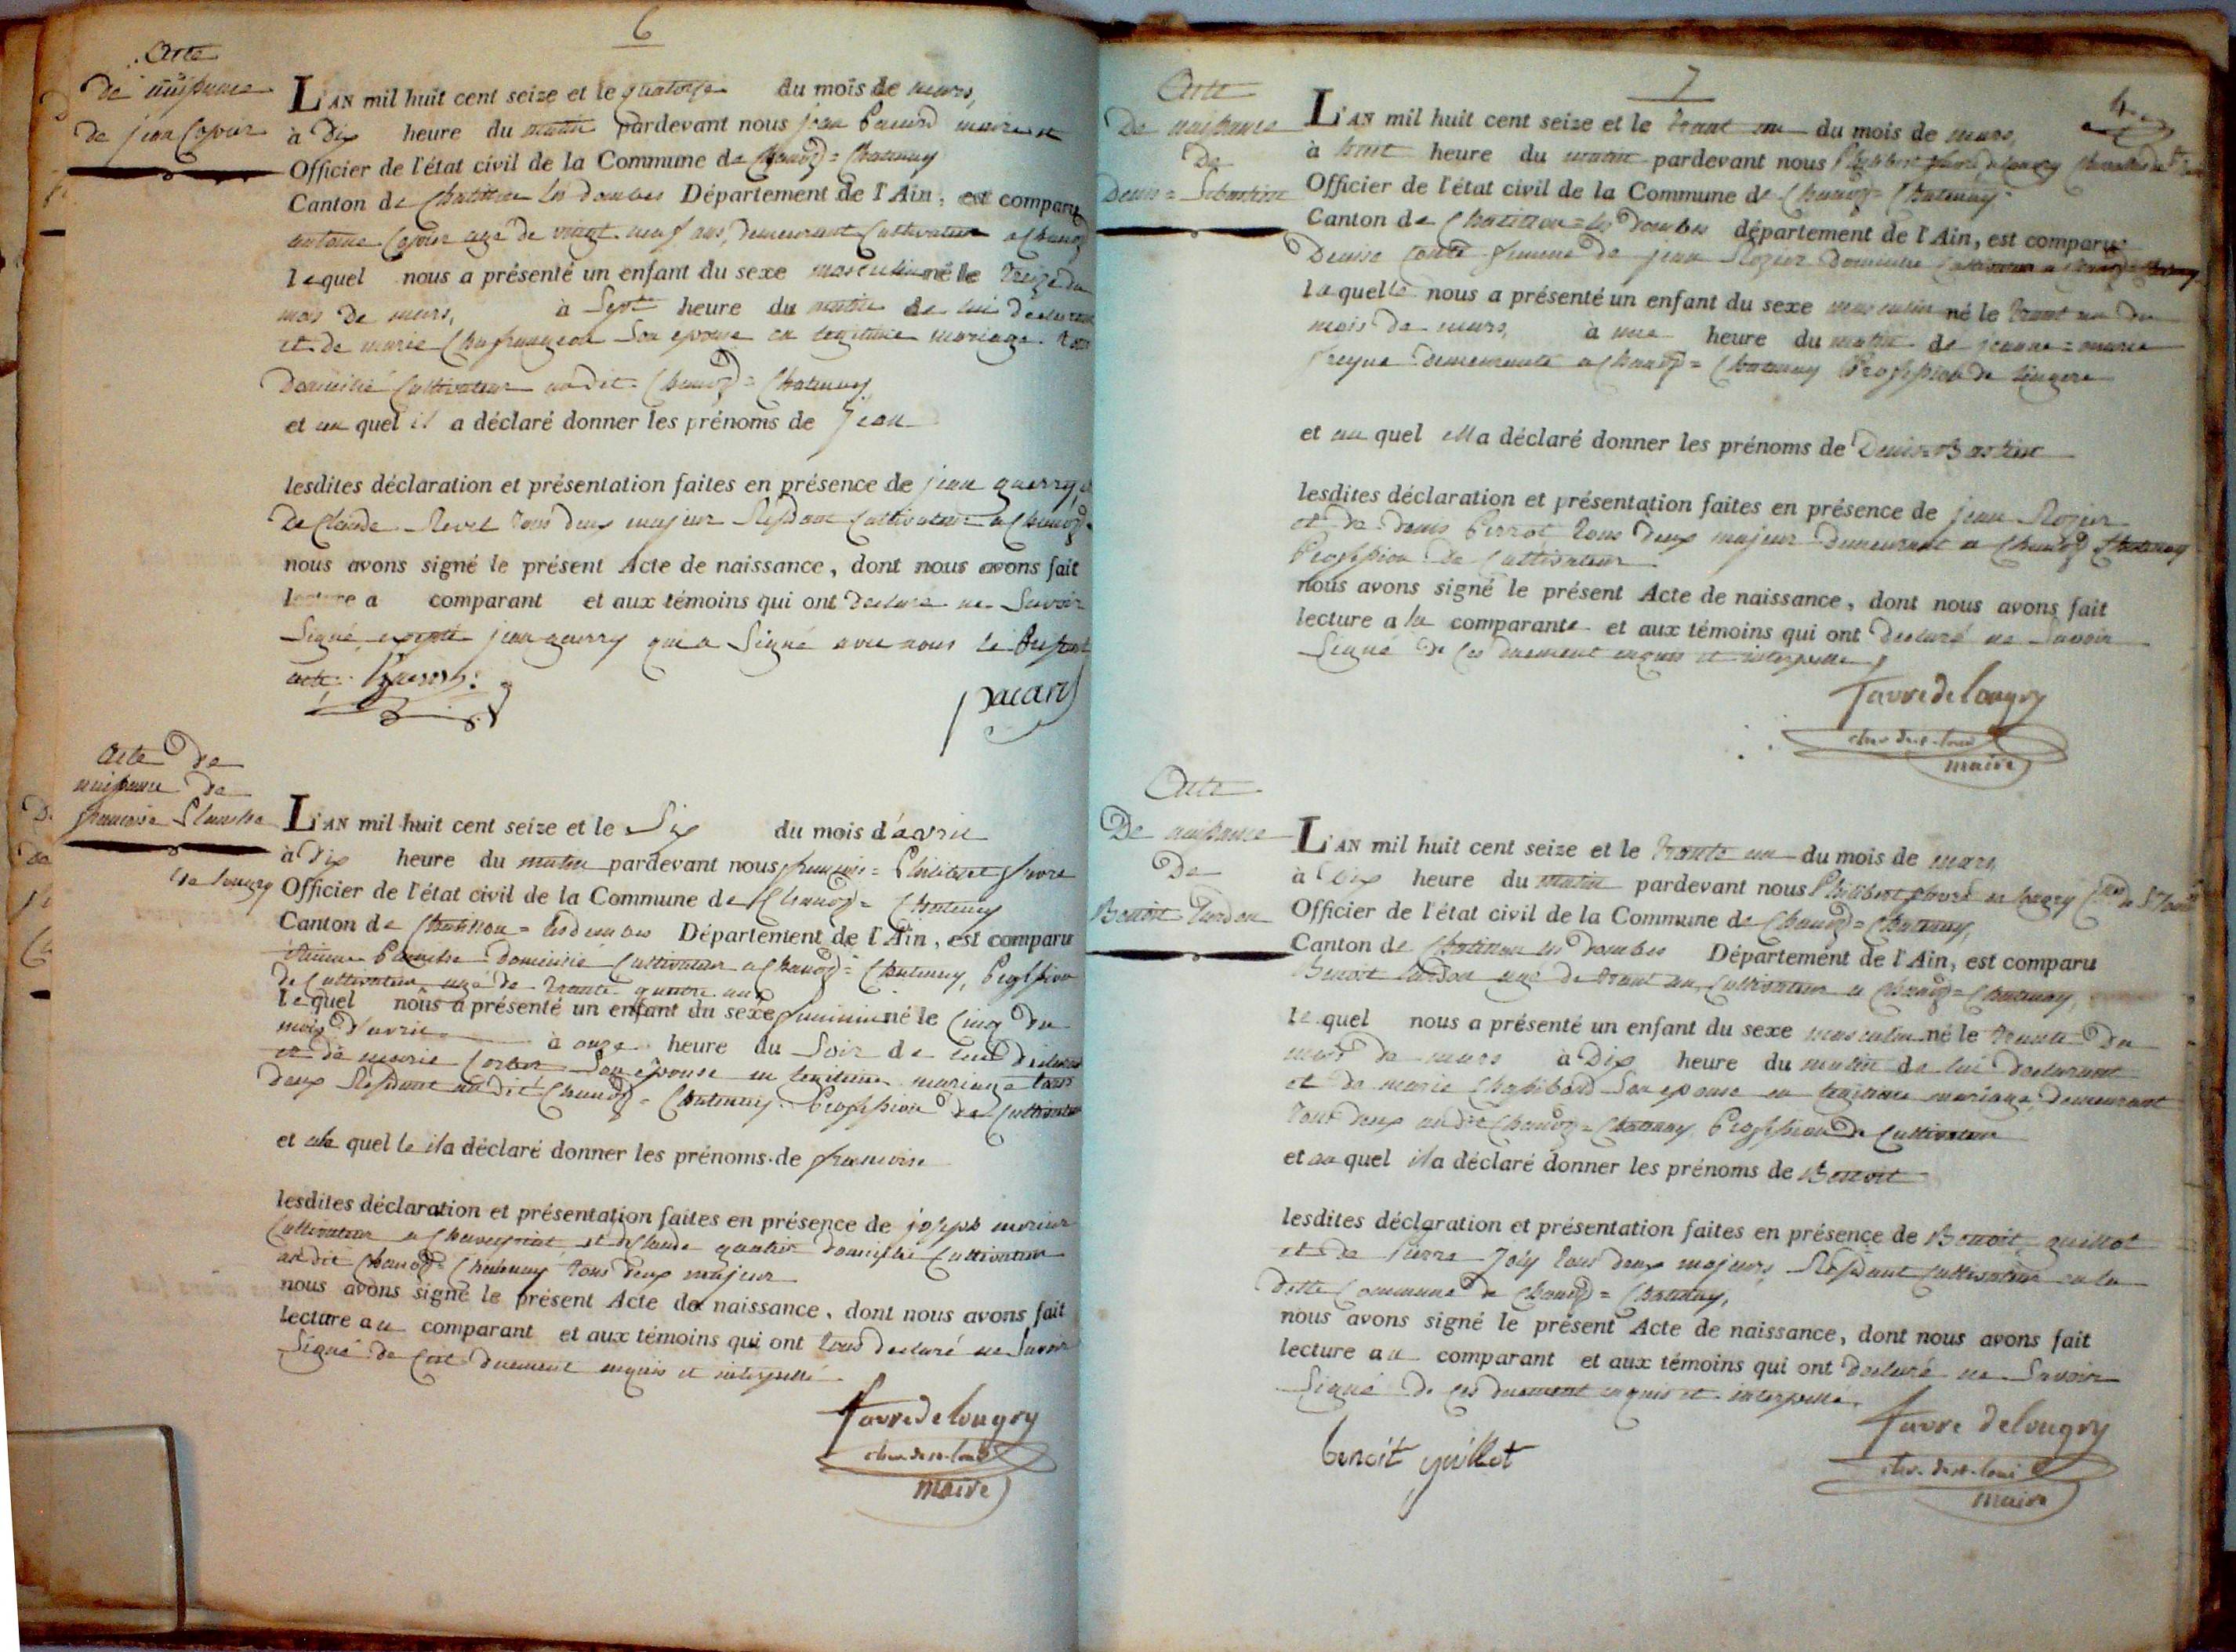 6
Acte
de naissance
de jean Copier
L'AN mil huit cent seize et le quatorze du mois de mars,
à Dix heure du matin pardevant nous jean Pacard maire et
Officier de l'état civil de la Commune de Chanoz = Chatenay
Canton de Chatillon les dombes Département de l'Ain, est comparu
antoine Copier age de vingt neuf ans, demeurant Cultivateur a Chanoz
lequel nous a présenté un enfant du sexe masculin né le treize du
mois de mars, à Sept heure du matin de lui declarant
et de marie son epouse en legitime mariage tous
Domicilié Cultivateur au dit Chanoz = Chatenay
et au quel il a déclaré donner les prénoms de jean
lesdites déclaration et présentation faites en présence de jean guerry, et
De Claude Revel tous deux majeur Résidant Cultivateur a Chanoz
nous avons signé le présent Acte de naissance, dont nous avons fait
lecture a comparant et aux témoins qui ont declaré ne Savoir
Signé excepté jean guerry qui a Signé avec nous le présent
acte.
pacard
Acte de
naissance de
francoise Planche
L'AN mil huit cent seize et le Six du mois d'avril
à Dix heure du matin pardevant nous francois = Philibert favre
de longry Officier de l'état civil de la Commune de Chanoz = Chatenay
Canton de Chatillon = les dombes Département de l'Ain, est comparu
Planche Domicilié Cultivateur a Chanoz = Chatenay, Profession
de Cultivateur agé de trante quatre ans
lequel nous a présenté un enfant du sexe feminin né le Cinq du
mois d'avril à onze heure du Soir de lui déclarant
et de marie Son epouse en legitime mariage tous
deux Résidant au dit Chanoz = Chatenay Profession de Cultivateur
et a la quel le il a déclaré donner les prénoms de francoise
lesdites déclaration et présentation faites en présence de joseph
Cultivateur a et de Claude domicilié Cultivateur
au dit Chanoz = Chatenay tous deux majeur
nous avons signé le présent Acte de naissance, dont nous avons fait
lecture au comparant et aux témoins qui ont tous declaré ne Savoir
Signé de ce duement enquis et interpellé
favre de longry
chev. de st. louis
maire
7
Acte
De naissance
De
Denis = Sebastien
L'AN mil huit cent seize et le trant un du mois de mars,
à huit heure du matin pardevant nous Philibert favre de longry Chevallier de St
Officier de l'état civil de la Commune de Chanoz = Chatenay
Canton de Chatillon = les dombes département de l'Ain, est comparue
Denise femme de jean Rozier Domicilié Cultivateur a Chanoz = Chatenay
laquelle nous a présenté un enfant du sexe masculin né le trant un du
mois de mars, à une heure du matin de jeanne = marie
demeurante a Chanoz = Chatenay Profession de lingere
et au quel elle a déclaré donner les prénoms de Denis = Bastien
lesdites déclaration et présentation faites en présence de jean Rozier
et de denis Perrot tous deux majeur demeurant a Chanoz Chatenay
Profession de Cultivateur
nous avons signé le présent Acte de naissance, dont nous avons fait
lecture a la comparante et aux témoins qui ont declaré ne Savoir
Signé de ces duement enquis et interpellé
favre de longry
chev de st. louis
maire
Acte
De naissance
De
Benoit Turdon
L'AN mil huit cent seize et le trante un du mois de mars,
à Dix heure du matin pardevant nous Philibert favre de longry Cher de St Louis
Officier de l'état civil de la Commune de Chanoz = Chatenay,
Canton de Chatillon les dombes Département de l'Ain, est comparu
Benoit Turdon agé de trant an Cultivateur a Chanoz = Chatenay,
lequel nous a présenté un enfant du sexe masculin né le trante du
mois de mars à Dix heure du matin de lui declarant
et de marie Son epouse en legitime mariage, demeurant
tout deux au dit Chanoz = Chatenay Profession de Cultivateur
et au quel il a déclaré donner les prénoms de Benoit
lesdites déclaration et présentation faites en présence de Benoit guillot
et de Pierre Joly tous deux majeurs Résidant Cultivateur en la
ditte Commune de Chanoz = Chatenay,
nous avons signé le présent Acte de naissance, dont nous avons fait
lecture au comparant et aux témoins qui ont declaré ne Savoir
Signé de ces duement enquis et interpellé.
benoit guillot
favre de longry
chev. de st. louis
maire